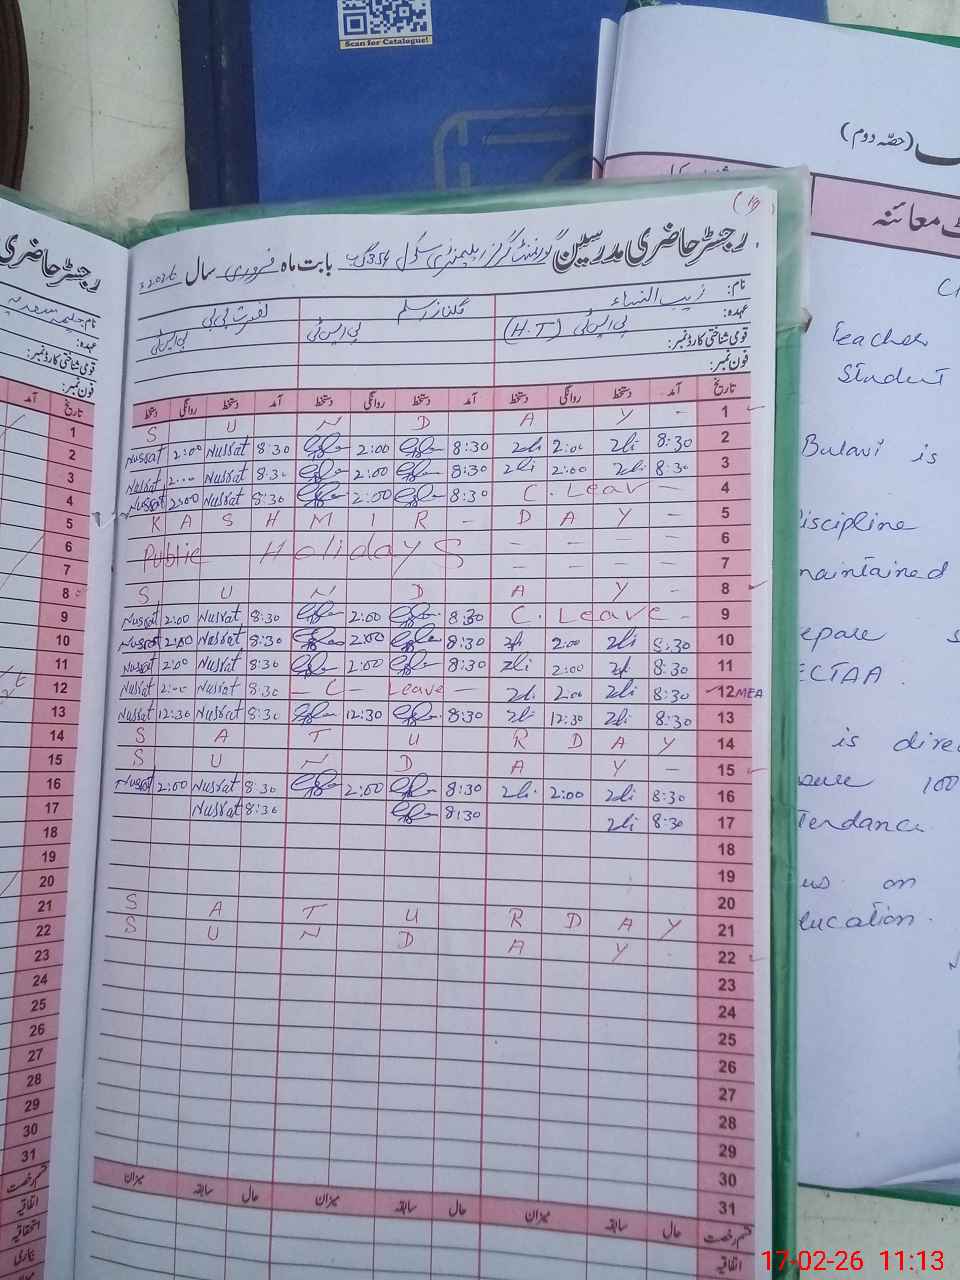 Scan for Catalogue!
(حصّہ دوم)
معائنہ
Teacher
Student
Bulavi is
Discipline
maintained
ECTAA.
is direc
100
Tendance
us on
ducation.
(19)
رجسٹر حاضری مدرسین گورنمنٹ گرلز ایلیمنٹری سکول 354 گ ب بابت ماہ فروری سال 2026ء
نام: زیب النساء گلناز نصرت بی بی
عہدہ: پی ایس ٹی (H.T) پی ایس ٹی پی ایس ٹی
قومی شناختی کارڈ نمبر:
فون نمبر:
تاریخ آمد دستخط روانگی دستخط آمد دستخط روانگی دستخط آمد دستخط روانگی دستخط
S U N D A Y - 1
Nusrat 2:00 Nusrat 8:30 2:00 8:30 2:00 8:30 2
Nusrat 2:00 Nusrat 8:30 2:00 8:30 2:00 8:30 3
Nusrat 2:00 Nusrat 8:30 2:00 8:30 C. Leav - 4
K A S H M I R - D A Y - 5
Public Holidays - - - - 6
- - - - 7
S U N D A Y - 8
Nusrat 2:00 Nusrat 8:30 2:00 8:30 C. Leave - 9
Nusrat 2:00 Nusrat 8:30 2:00 8:30 2:00 8:30 10
Nusrat 2:00 Nusrat 8:30 2:00 8:30 2:00 8:30 11
Nusrat 2:00 Nusrat 8:30 - C - Leave - 2:00 8:30 12 MEA
Nusrat 12:30 Nusrat 8:30 12:30 8:30 12:30 8:30 13
S A T U R D A Y 14
S U N D A Y - 15
Nusrat 2:00 Nusrat 8:30 2:00 8:30 2:00 8:30 16
Nusrat 8:30 8:30 8:30 17
18
19
20
S A T U R D A Y 21
S U N D A Y 22
23
24
25
26
27
28
29
30
31
قسم رخصت حال سابقہ میزان حال سابقہ میزان حال سابقہ میزان
اتفاقیہ
رجسٹر حاضری
نام:
عہدہ:
قومی شناختی کارڈ نمبر:
فون نمبر:
تاریخ آمد
1
2
3
4
5
6
7
8
9
10
11
12
13
14
15
16
17
18
19
20
21
22
23
24
25
26
27
28
29
30
31
قسم رخصت
اتفاقیہ
استحقاقیہ
بیماری
17-02-26 11:13